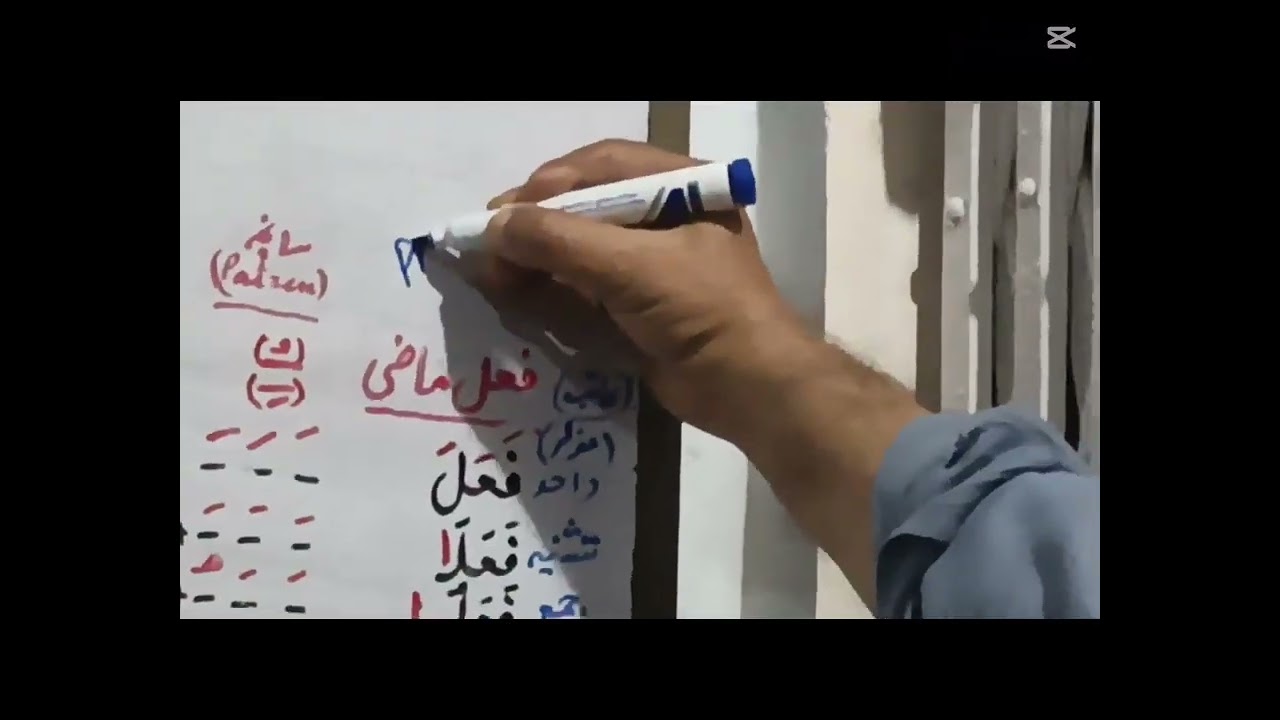 P
سانچہ
(Pattern)
(غائب) فعل ماضی
(مذکر)
واحد فَعَلَ
تثنیہ فَعَلَا
جمع